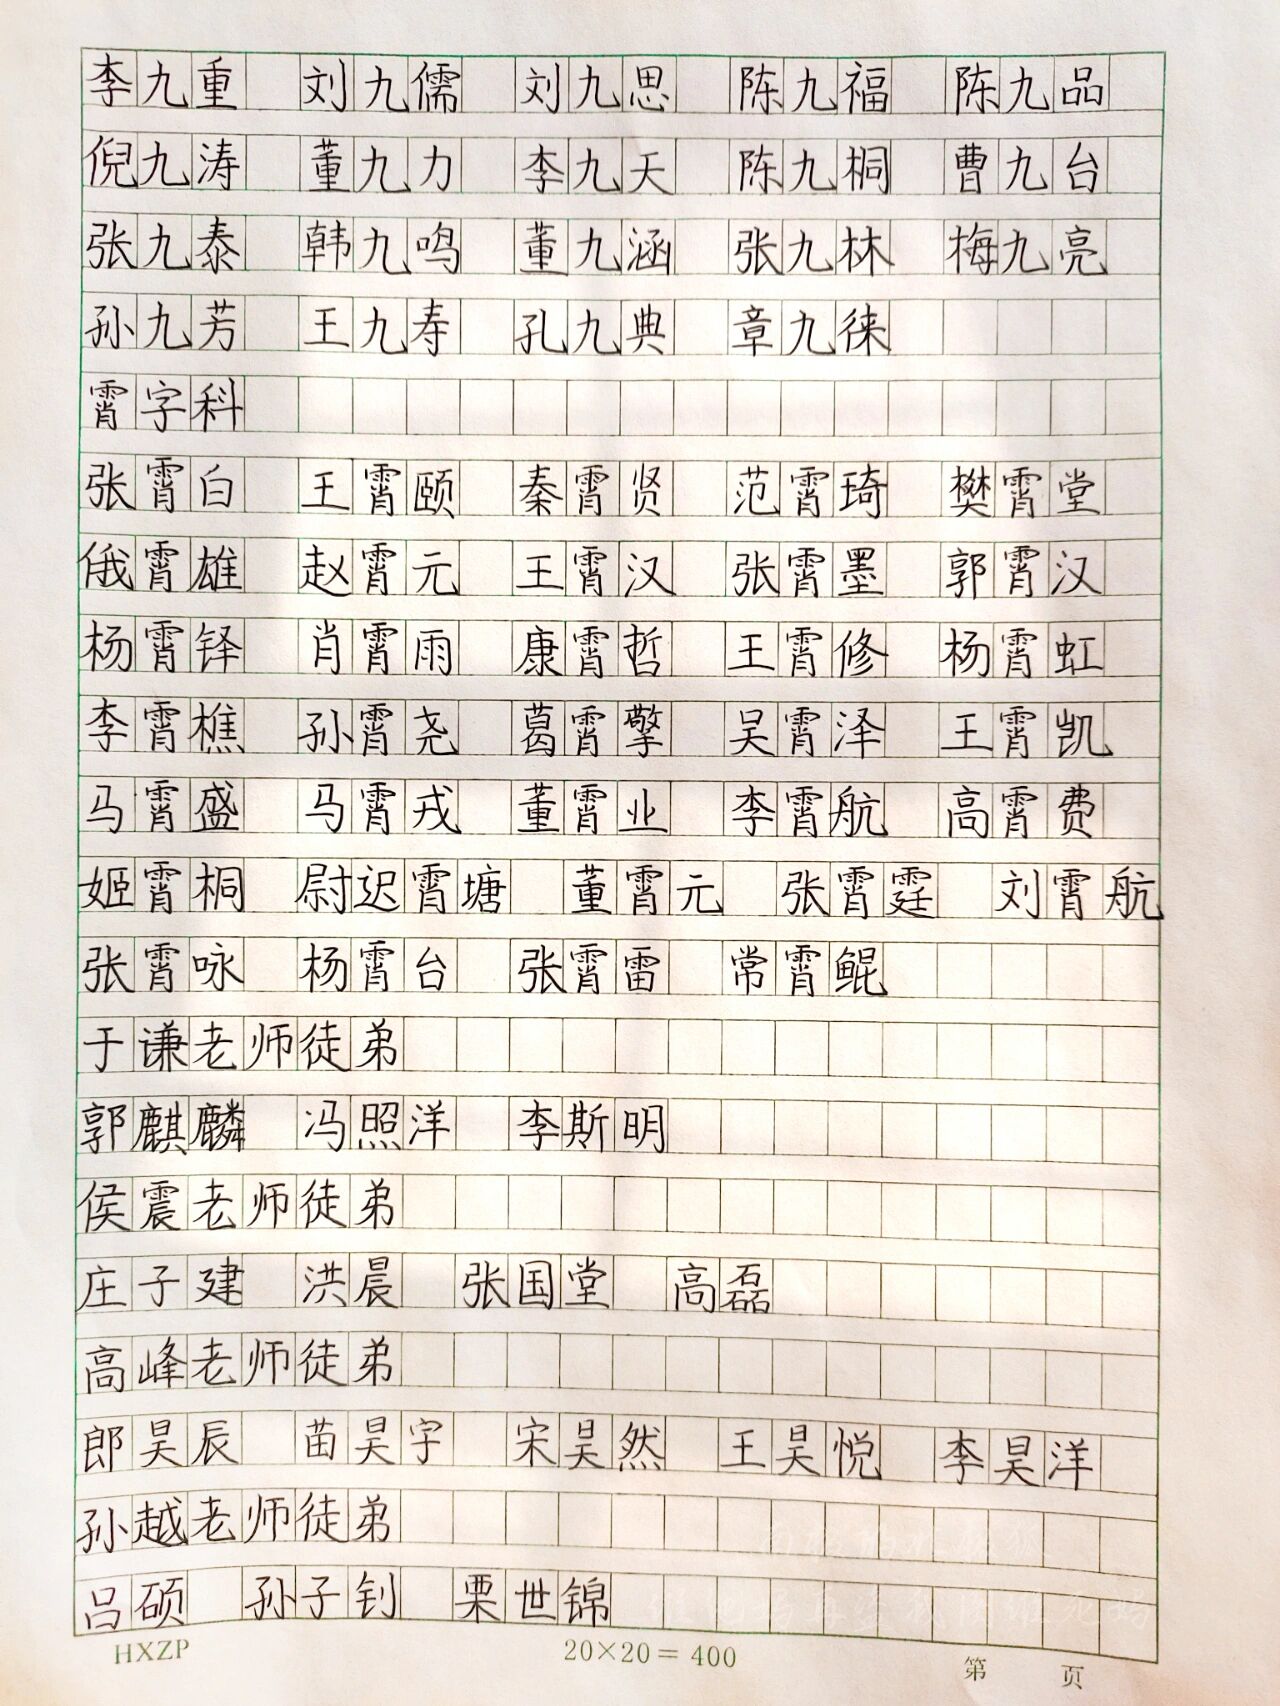 李九重 刘九儒 刘九思 陈九福 陈九品
倪九涛 董九力 李九天 陈九桐 曹九台
张九泰 韩九鸣 董九涵 张九林 梅九亮
孙九芳 王九寿 孔九典 章九徕
霄字科
张霄白 王霄颐 秦霄贤 范霄琦 樊霄堂
俄霄雄 赵霄元 王霄汉 张霄墨 郭霄汉
杨霄铎 肖霄雨 康霄哲 王霄修 杨霄虹
李霄樵 孙霄尧 葛霄擎 吴霄泽 王霄凯
马霄盛 马霄戎 董霄业 李霄航 高霄费
姬霄桐 尉迟霄塘 董霄元 张霄霆 刘霄航
张霄咏 杨霄台 张霄雷 常霄鲲
于谦老师徒弟
郭麒麟 冯照洋 李斯明
侯震老师徒弟
庄子建 洪晨 张国堂 高磊
高峰老师徒弟
郎昊辰 苗昊宇 宋昊然 王昊悦 李昊洋
孙越老师徒弟
吕硕 孙子钊 栗世锦
HXZP 20×20=400 第 页